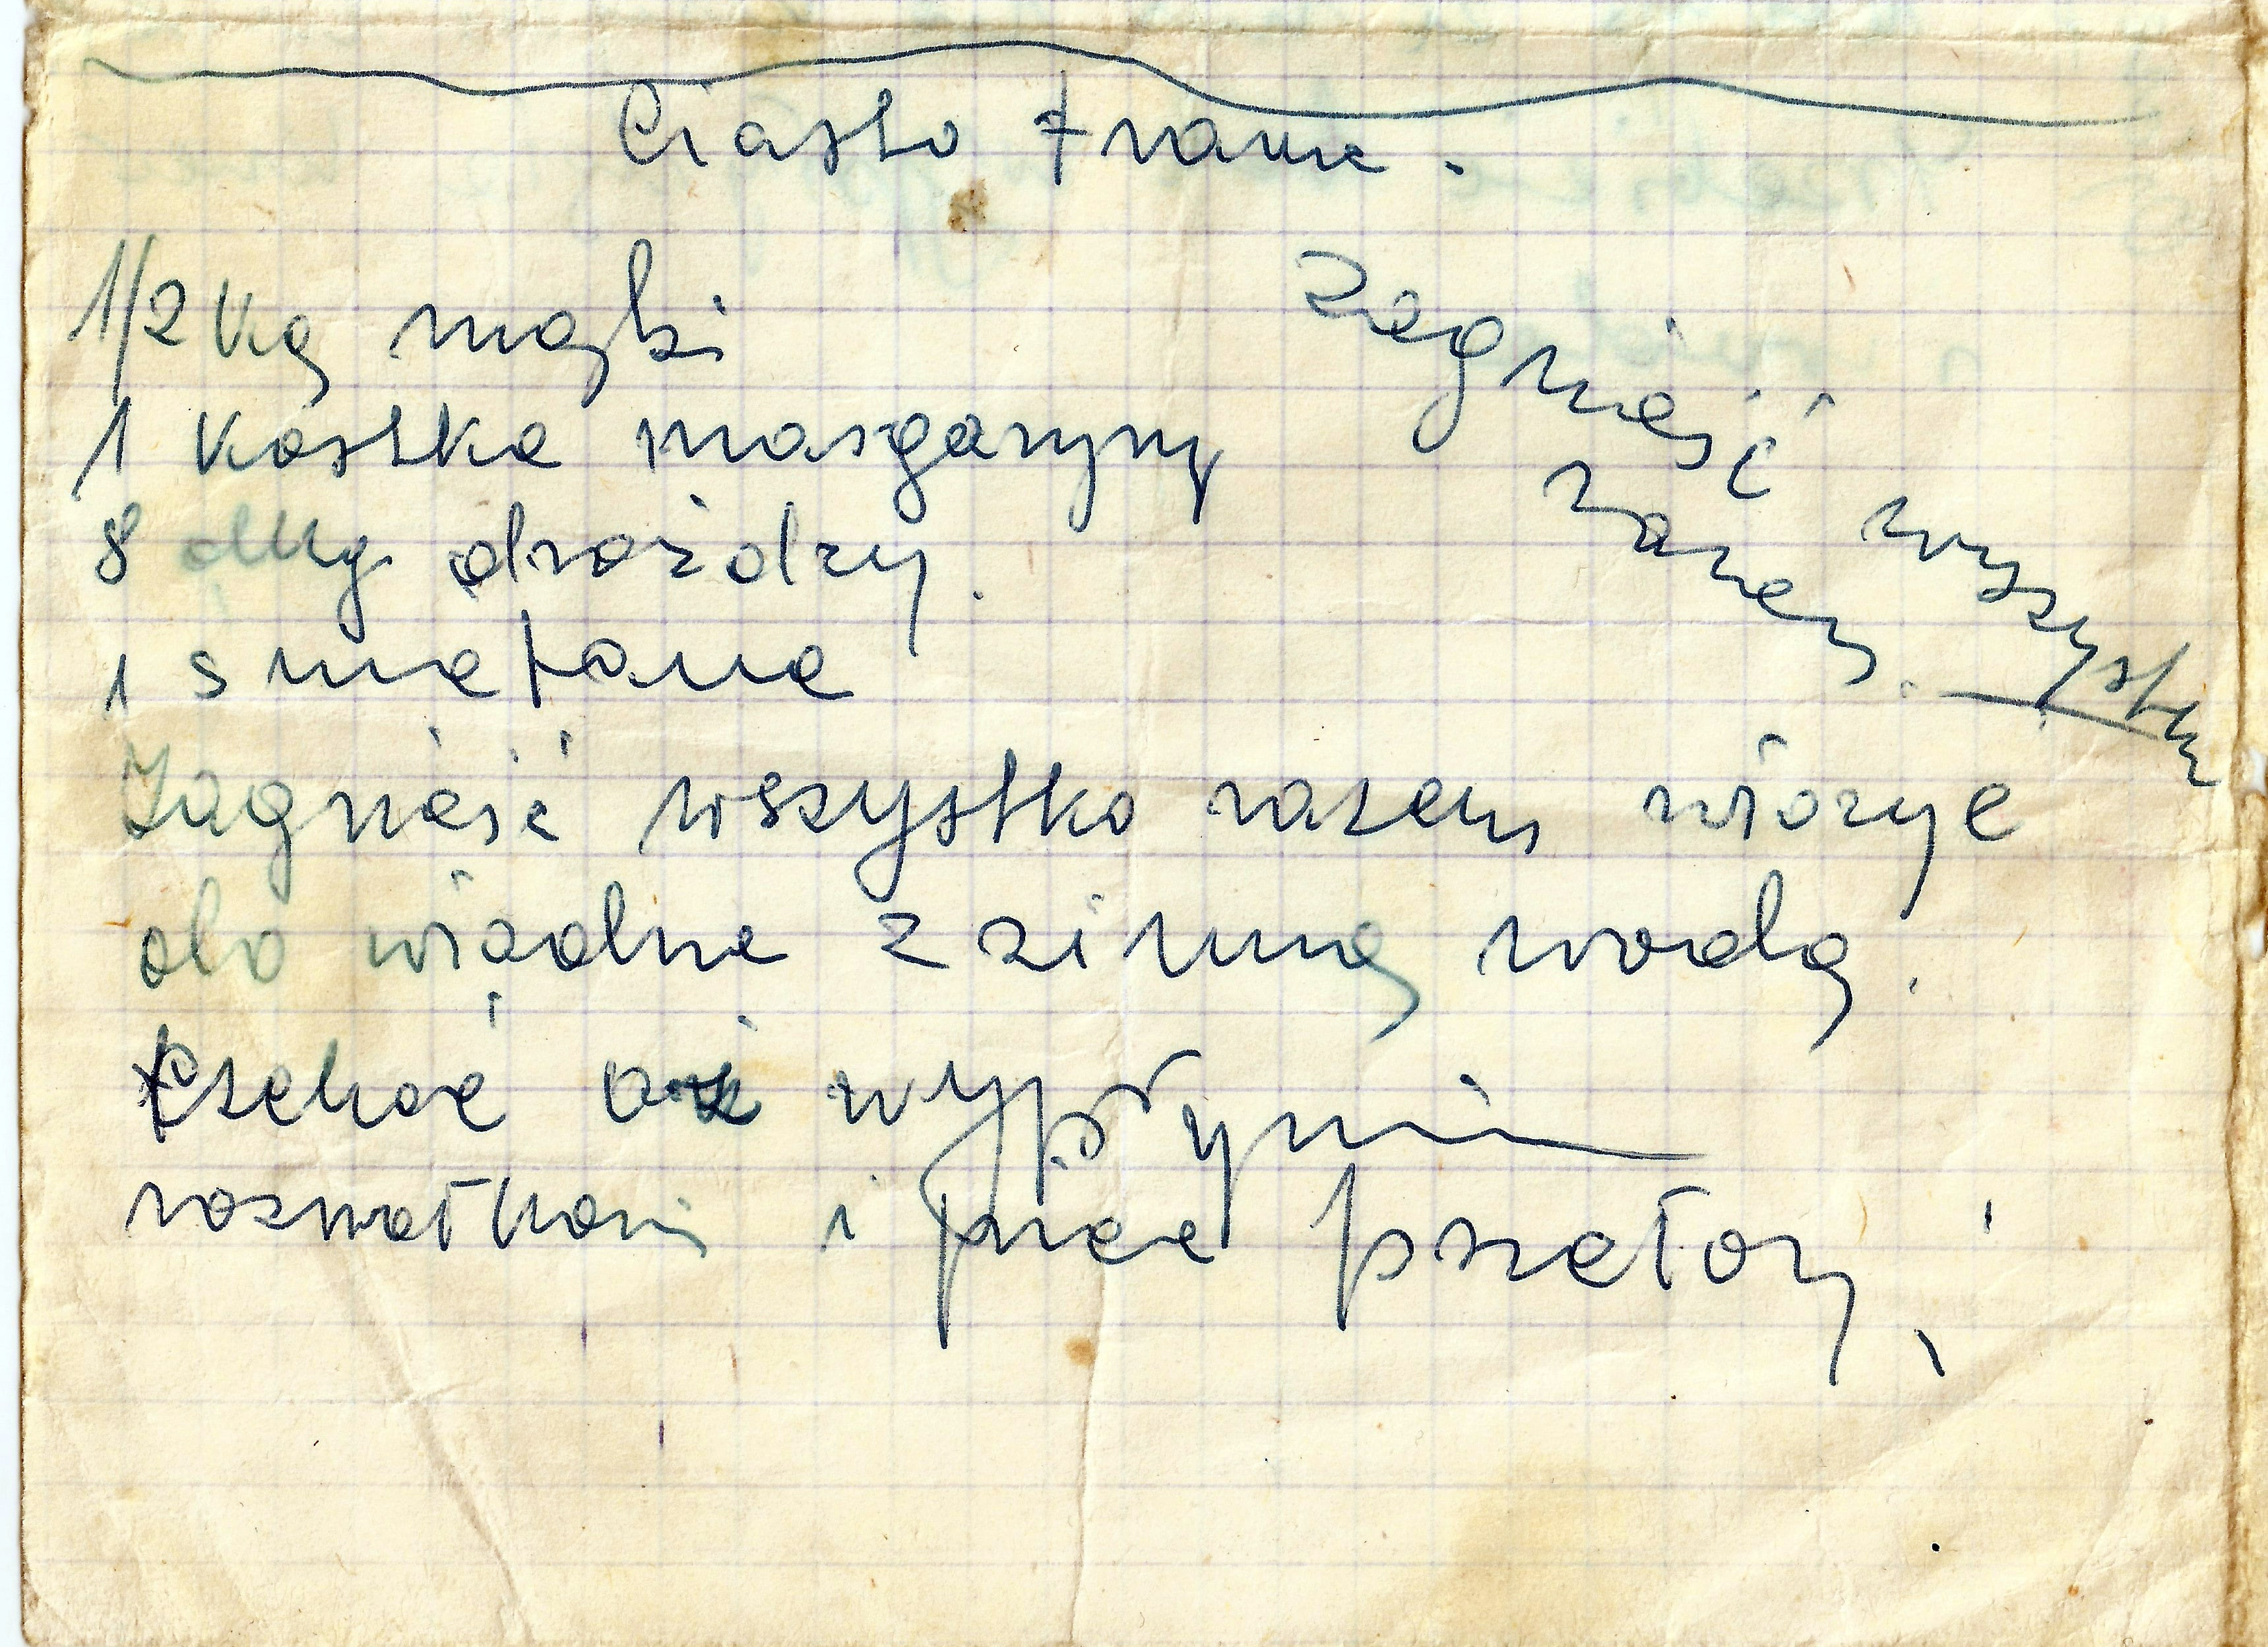 Ciasto Franc.
1/2 kg mąki
1 kostka margaryny
8 dkg drożdzy.
1 smietana
Zagnieść wszystko
razem.
Zagnieść wszystko razem włożyć
do wiadra z zimną wodą.
Czekać aż wypłynie
rozwałkować i piec